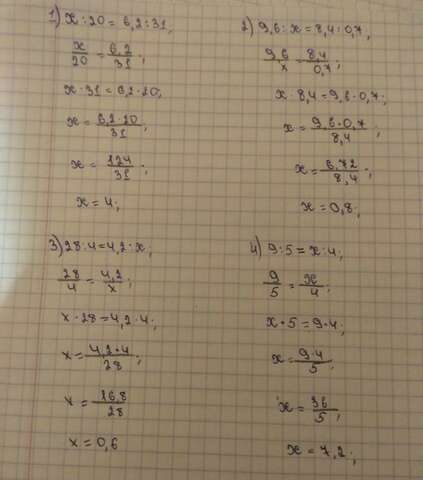 1) x : 20 = 6,2 : 31;
x/20 = 6,2/31;
x · 31 = 6,2 · 20;
x = 6,2 · 20/31;
x = 124/31;
x = 4;
2) 9,6 : x = 8,4 : 0,7;
9,6/x = 8,4/0,7;
x · 8,4 = 9,6 · 0,7;
x = 9,6 · 0,7/8,4;
x = 6,72/8,4;
x = 0,8;
3) 28 : 4 = 4,2 : x;
28/4 = 4,2/x;
x · 28 = 4,2 · 4;
x = 4,2 · 4/28;
x = 16,8/28
x = 0,6
4) 9 : 5 = x : 4;
9/5 = x/4;
x · 5 = 9 · 4;
x = 9 · 4/5;
x = 36/5;
x = 7,2;